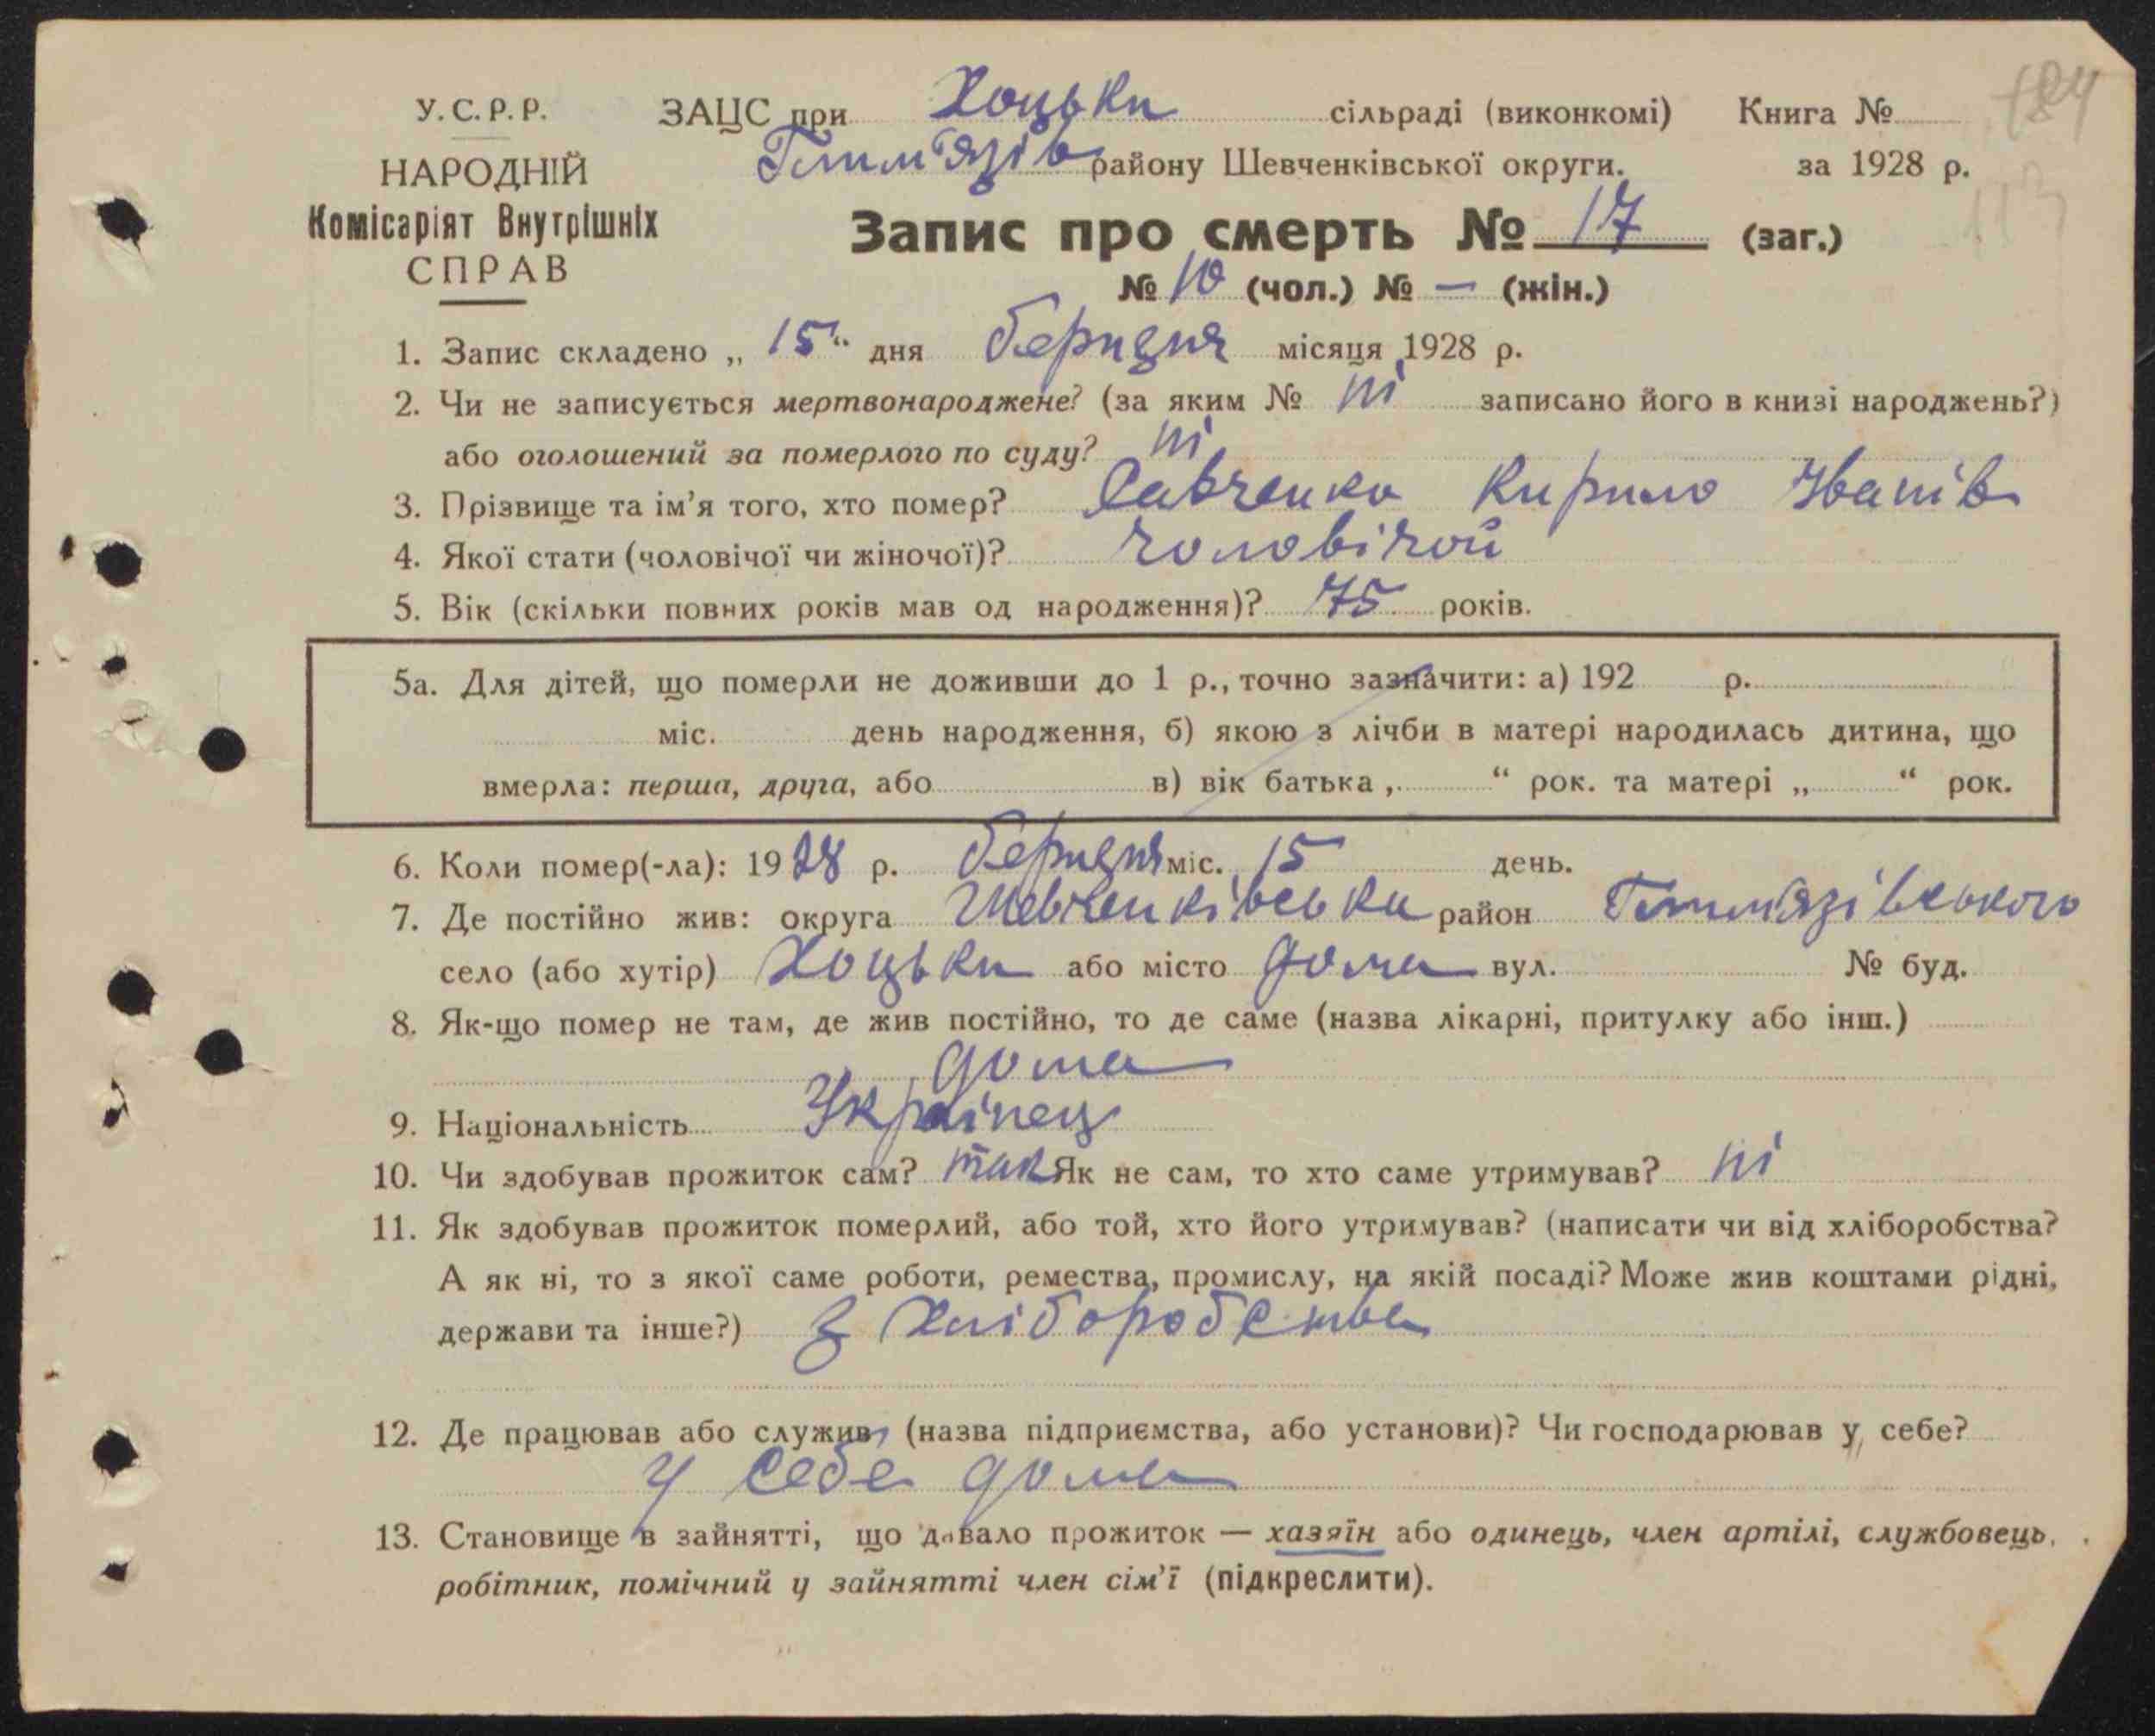 У.С.Р.Р. ЗАЦС при Хоцьки сільраді (виконкомі) Книга №
184
Гельм'язів району Шевченківської округи. за 1928 р.
НАРОДНІЙ
Комісаріят Внутрішніх
СПРАВ
113
Запис про смерть № 17 (заг.)
№ 10 (чол.) № — (жін.)
1. Запис складено „ 15 “ дня березня місяця 1928 р.
2. Чи не записується мертвонароджене? (за яким № ні записано його в книзі народжень?)
або оголошений за померлого по суду? ні
3. Прізвище та ім'я того, хто помер? Савченко Кирило Іванів
4. Якої стати (чоловічої чи жіночої)? чоловічой
5. Вік (скільки повних років мав од народження)? 75 років.
5а. Для дітей, що померли не доживши до 1 р., точно зазначити: а) 192 р.
міс. день народження, б) якою з лічби в матері народилась дитина, що
вмерла: перша, друга, або в) вік батька „ “ рок. та матері „ “ рок.
6. Коли помер(-ла): 1928 р. березня міс. 15 день.
7. Де постійно жив: округа Шевченківська район Гельмязівського
село (або хутір) Хоцьки або місто дома вул. № буд.
8. Як-що помер не там, де жив постійно, то де саме (назва лікарні, притулку або інш.)
дома
9. Національність Українец
10. Чи здобував прожиток сам? так Як не сам, то хто саме утримував? ні
11. Як здобував прожиток померлий, або той, хто його утримував? (написати чи від хліборобства?
А як ні, то з якої саме роботи, ремества, промислу, на якій посаді? Може жив коштами рідні,
держави та інше?) з хліборобства
12. Де працював або служив, (назва підприємства, або установи)? Чи господарював у себе?
у себе дома
13. Становище в зайнятті, що давало прожиток — хазяїн або одинець, член артілі, службовець,
робітник, помічний у зайнятті член сім'ї (підкреслити).